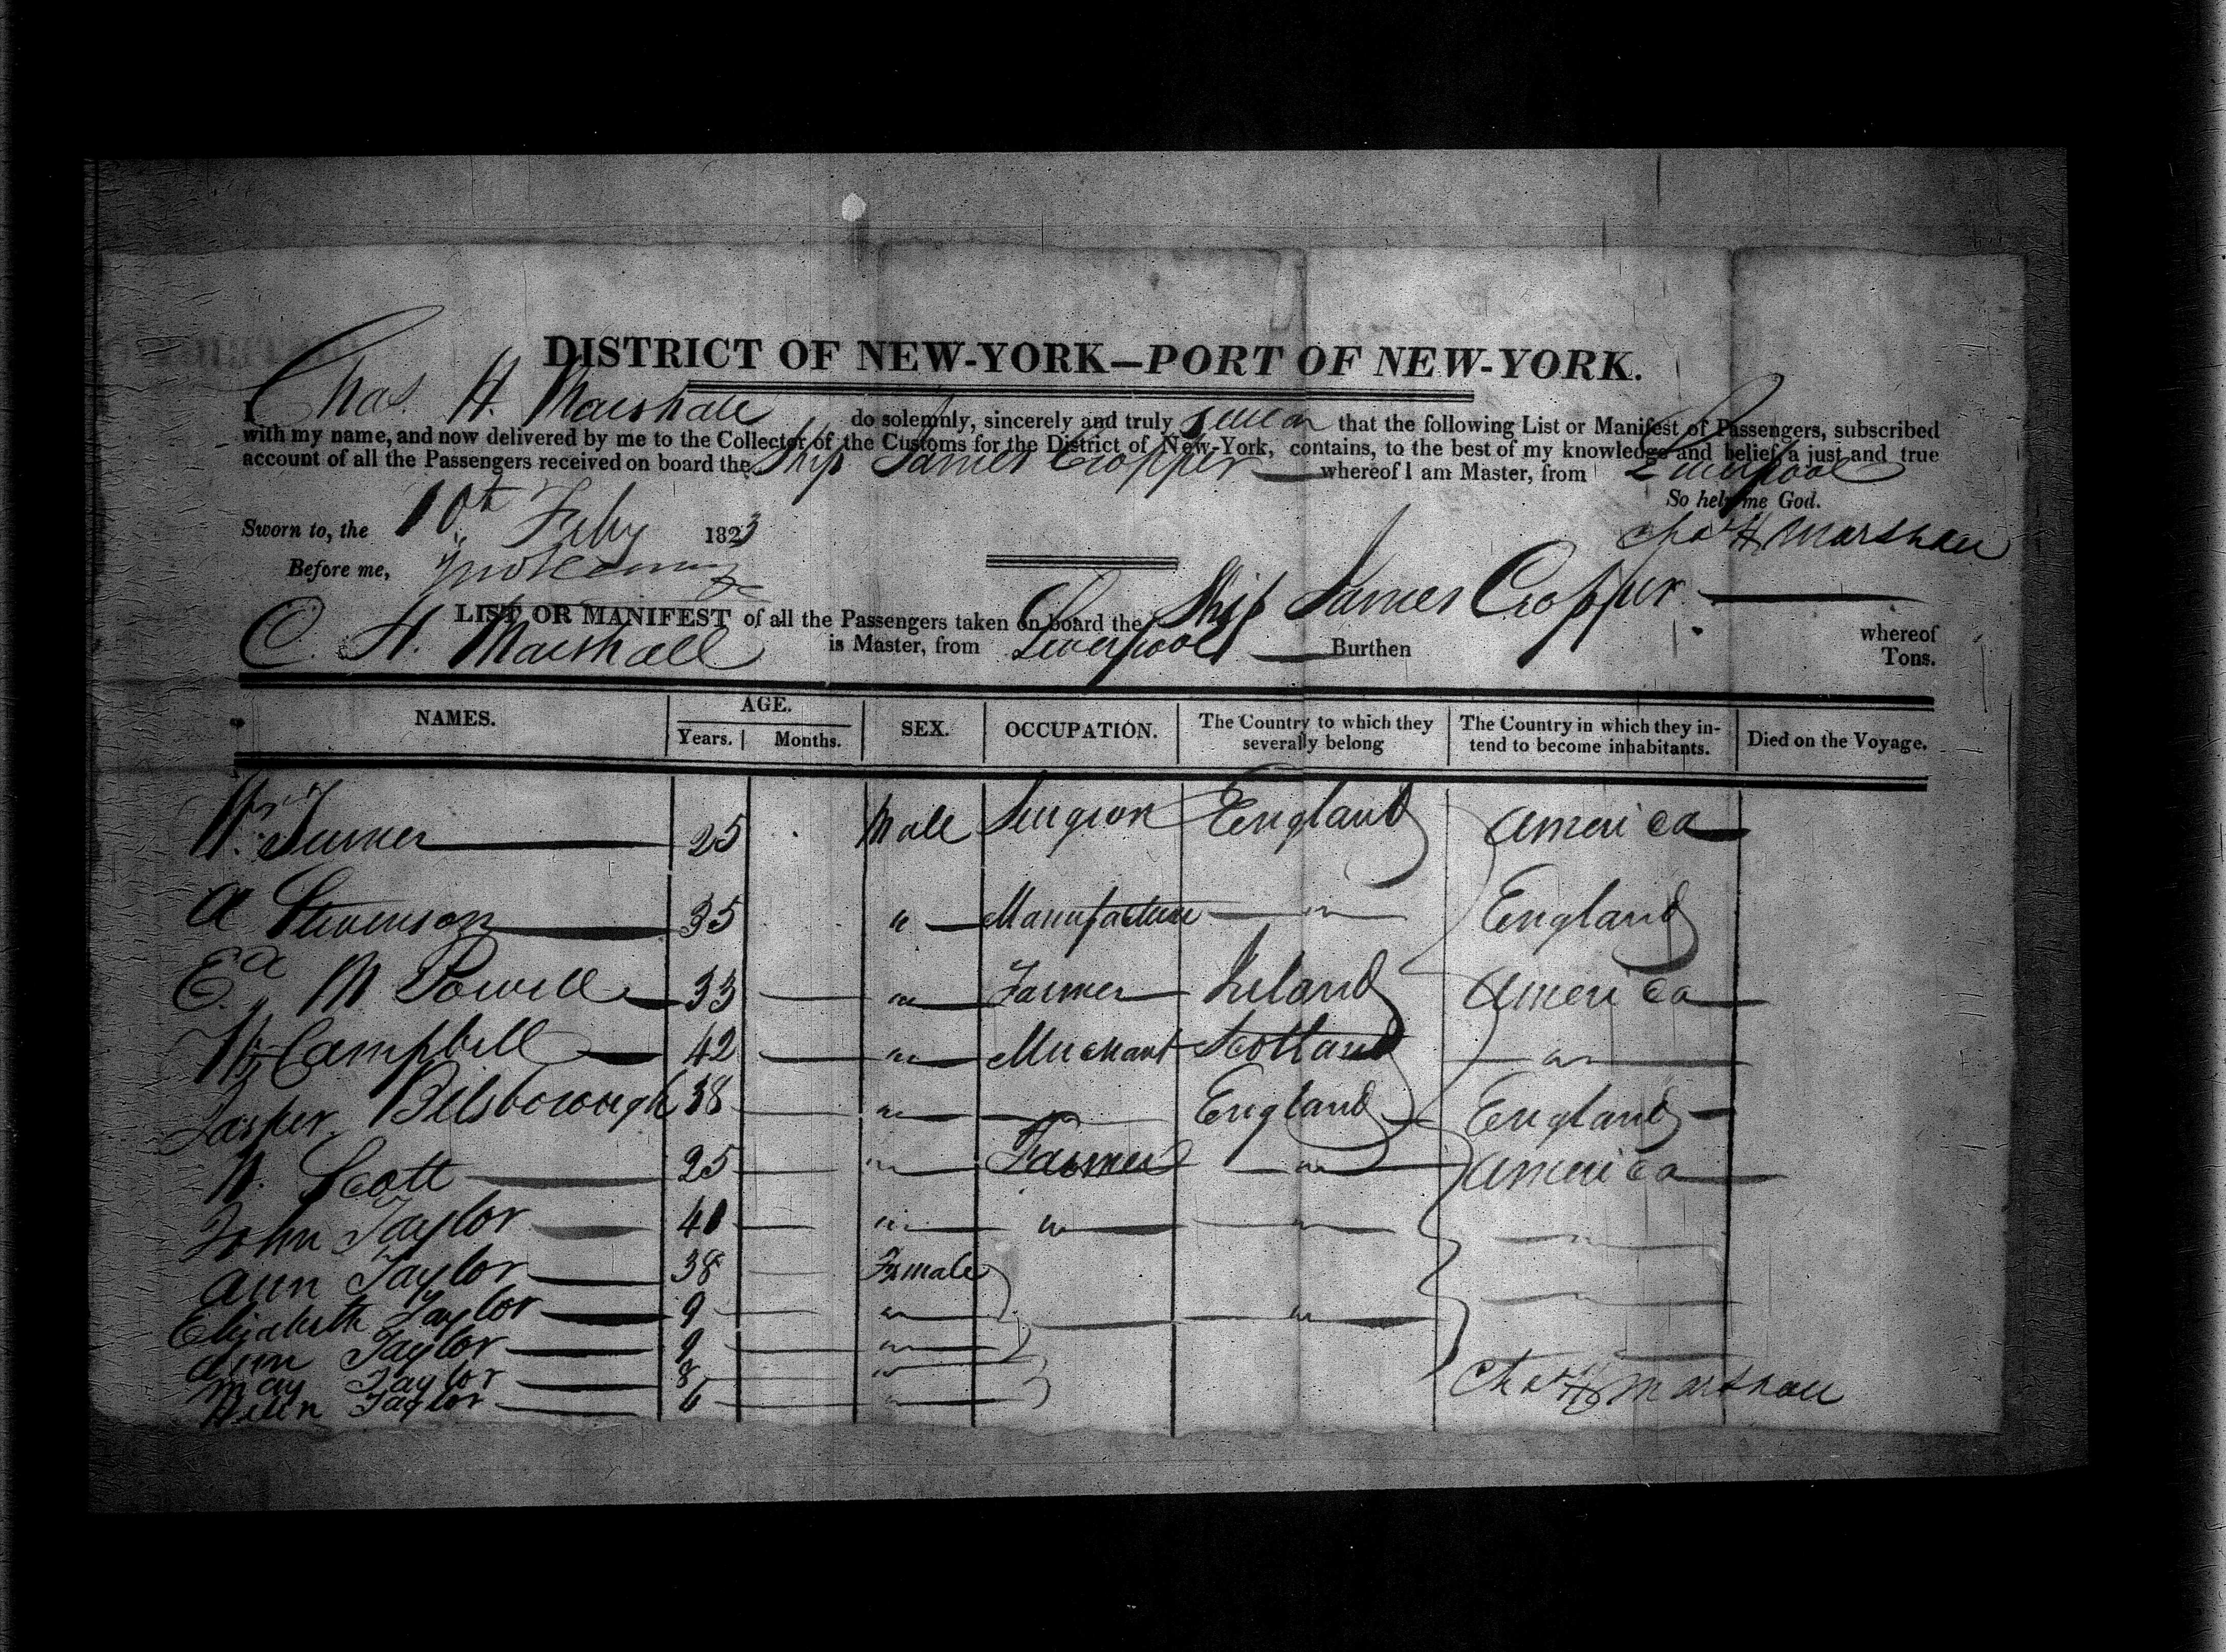 DISTRICT OF NEW-YORK—PORT OF NEW-YORK.
Chas. H. Marshall do solemnly, sincerely and truly swear that the following List or Manifest of Passengers, subscribed
with my name, and now delivered by me to the Collector of the Customs for the District of New-York, contains, to the best of my knowledge and belief, a just and true
account of all the Passengers received on board the Ship James Cropper whereof I am Master, from Liverpool
So help me God.
Sworn to, the 10th Feby 1823 Chas H Marshall
Before me,
LIST OR MANIFEST of all the Passengers taken on board the Ship James Cropper whereof
C. H. Marshall is Master, from Liverpool Burthen Tons.
NAMES. AGE. Years. Months. SEX. OCCUPATION. The Country to which they severally belong The Country in which they intend to become inhabitants. Died on the Voyage.
Wm Turner 25 Male Surgeon England America
A Stevenson 35 " Manufacture " England
Ed M Powell 33 " Farmer Ireland America
Campbell 42 " Merchant Scotland "
Jasper Bilsborough 38 " " England England
N. Scott 25 " Farmer " America
John Taylor 40 " " " "
Ann Taylor 38 Female
Elizabeth Taylor 9 " " "
Ann Taylor 9 "
May Taylor 8 " "
Helen Taylor 6 "
Chas H Marshall